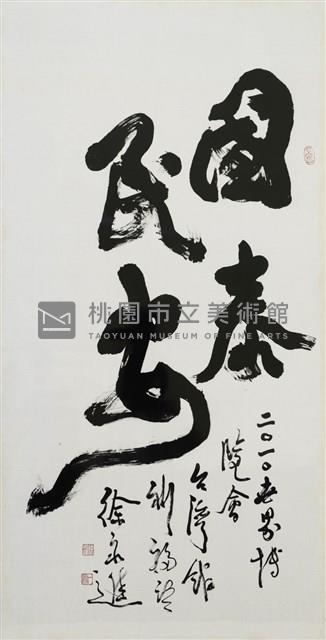 國泰
民安
二〇一〇世界博
覽會
台灣館
祈福語
徐永進
桃園市立美術館
TAOYUAN MUSEUM OF FINE ARTS